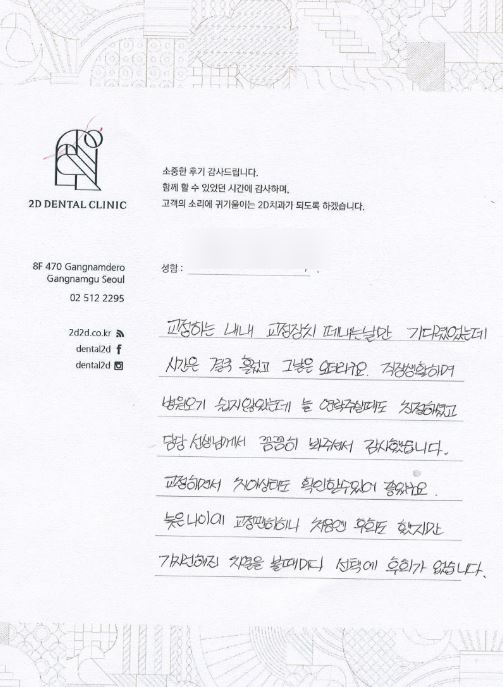 2D DENTAL CLINIC
소중한 후기 감사드립니다.
함께 할 수 있었던 시간에 감사하며,
고객의 소리에 귀기울이는 2D치과가 되도록 하겠습니다.
8F 470 Gangnamdero
Gangnamgu Seoul
02 512 2295
2d2d.co.kr
dental2d
dental2d
성함 :
교정하는 내내 교정장치 떼내는날만 기다렸었는데
시간은 결국 흘렀고 그날은 오더라구요. 직장생활하며
병원오기 쉽지않았는데 늘 연락주실때도 친절하셨고
담당 선생님께서 꼼꼼히 봐주셔서 감사했습니다.
교정하면서 치아상태도 확인할수있어 좋았구요.
늦은나이에 교정판하니 처음엔 후회도 했지만
가지런해진 치열을 볼때마다 선택에 후회가 없습니다.